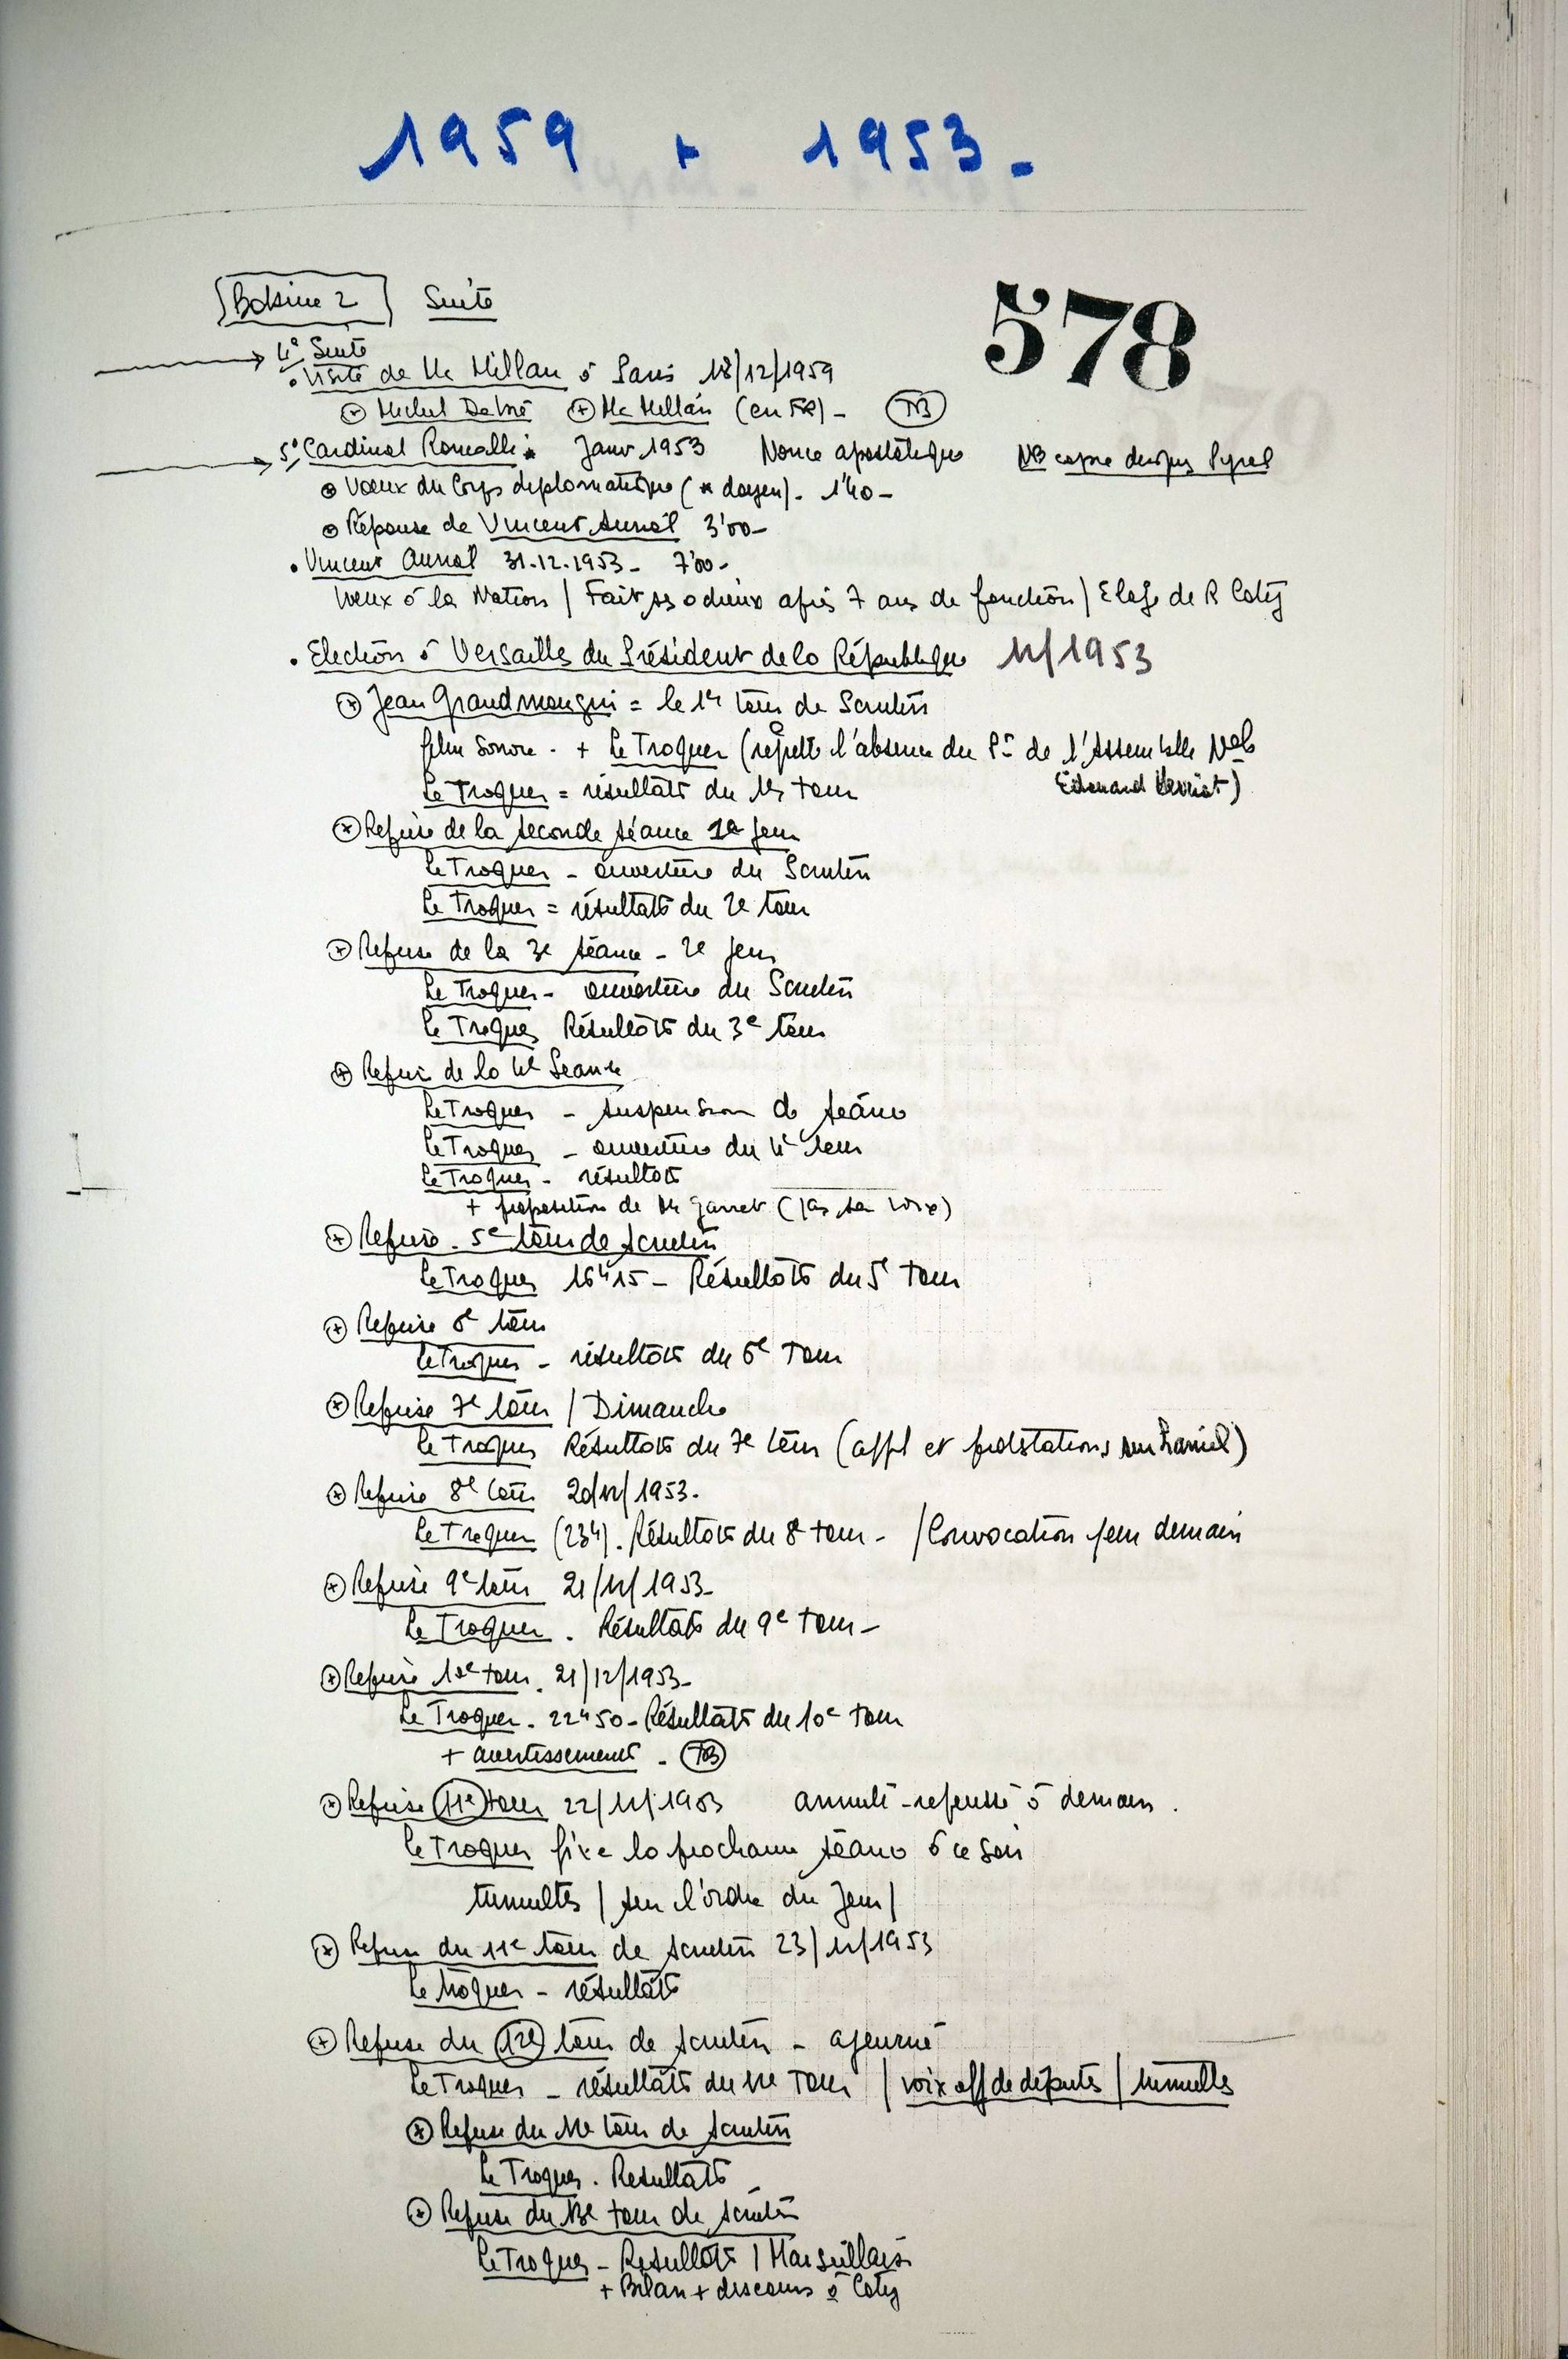 1959 + 1953.
Bobine 2 Suite
578
4° Suite
• Visite de Mc Millan à Paris 18/12/1959
Michel Debré Mc Millan (en FR) - TB
5° Cardinal Roncalli * Janv 1953 Nonce apostolique NB copie depuis Pyral
Vœux du Corps diplomatique (* doyen). 1'40 -
Réponse de Vincent Auriol 3'00 -
• Vincent Auriol 31.12.1953 - 7'00 -
Vœux à la Nation / Fait ses adieux après 7 ans de fonction / Eloge de R Coty
• Election à Versailles du Président de la République 12/1953
Jean Grandmougin = le 1er tour de Scrutin
film sonore . + Le Troquer (regrette l'absence du Pt de l'Assemblée Nale
Edouard Herriot)
Le Troquer = résultats du 1er tour
Reprise de la seconde séance 1er jour
Le Troquer - ouverture du Scrutin
Le Troquer = résultats du 2e tour
Reprise de la 3e séance - 2e jour
Le Troquer - ouverture du Scrutin
Le Troquer Résultats du 3e tour
Reprise de la 4e Séance
Le Troquer - suspension de séance
Le Troquer - ouverture du 4e tour
Le Troquer - résultats
+ proposition de Mr (pas sa voix)
Reprise . 5e tour de scrutin
Le Troquer 16h15 - Résultats du 5e tour
Reprise 6e tour
Le Troquer - résultats du 6e tour
Reprise 7e tour / Dimanche
Le Troquer Résultats du 7e tour (appl et protestations sur Laniel)
Reprise 8e tour 20/12/1953.
Le Troquer (23h). Résultats du 8e tour - / Convocation pour demain
Reprise 9e tour 21/12/1953 -
Le Troquer . Résultats du 9e tour -
Reprise 10e tour . 21/12/1953 -
Le Troquer . 22h50 - Résultats du 10e tour
+ avertissement - TB
Reprise 11e tour 22/12/1953 annulé - repoussé à demain .
Le Troquer fixe la prochaine séance à ce soir
tumultes / sur l'ordre du jour /
Reprise du 11e tour de scrutin 23/12/1953
Le Troquer - résultats
Reprise du 12e tour de scrutin - ajourné
Le Troquer - résultats du 11e tour / voix off de députés / tumultes
Reprise du 12e tour de scrutin
Le Troquer . Resultats
Reprise du 13e tour de scrutin
Le Troquer - Resultats / Marseillaise
+ Bilan + discours à Coty